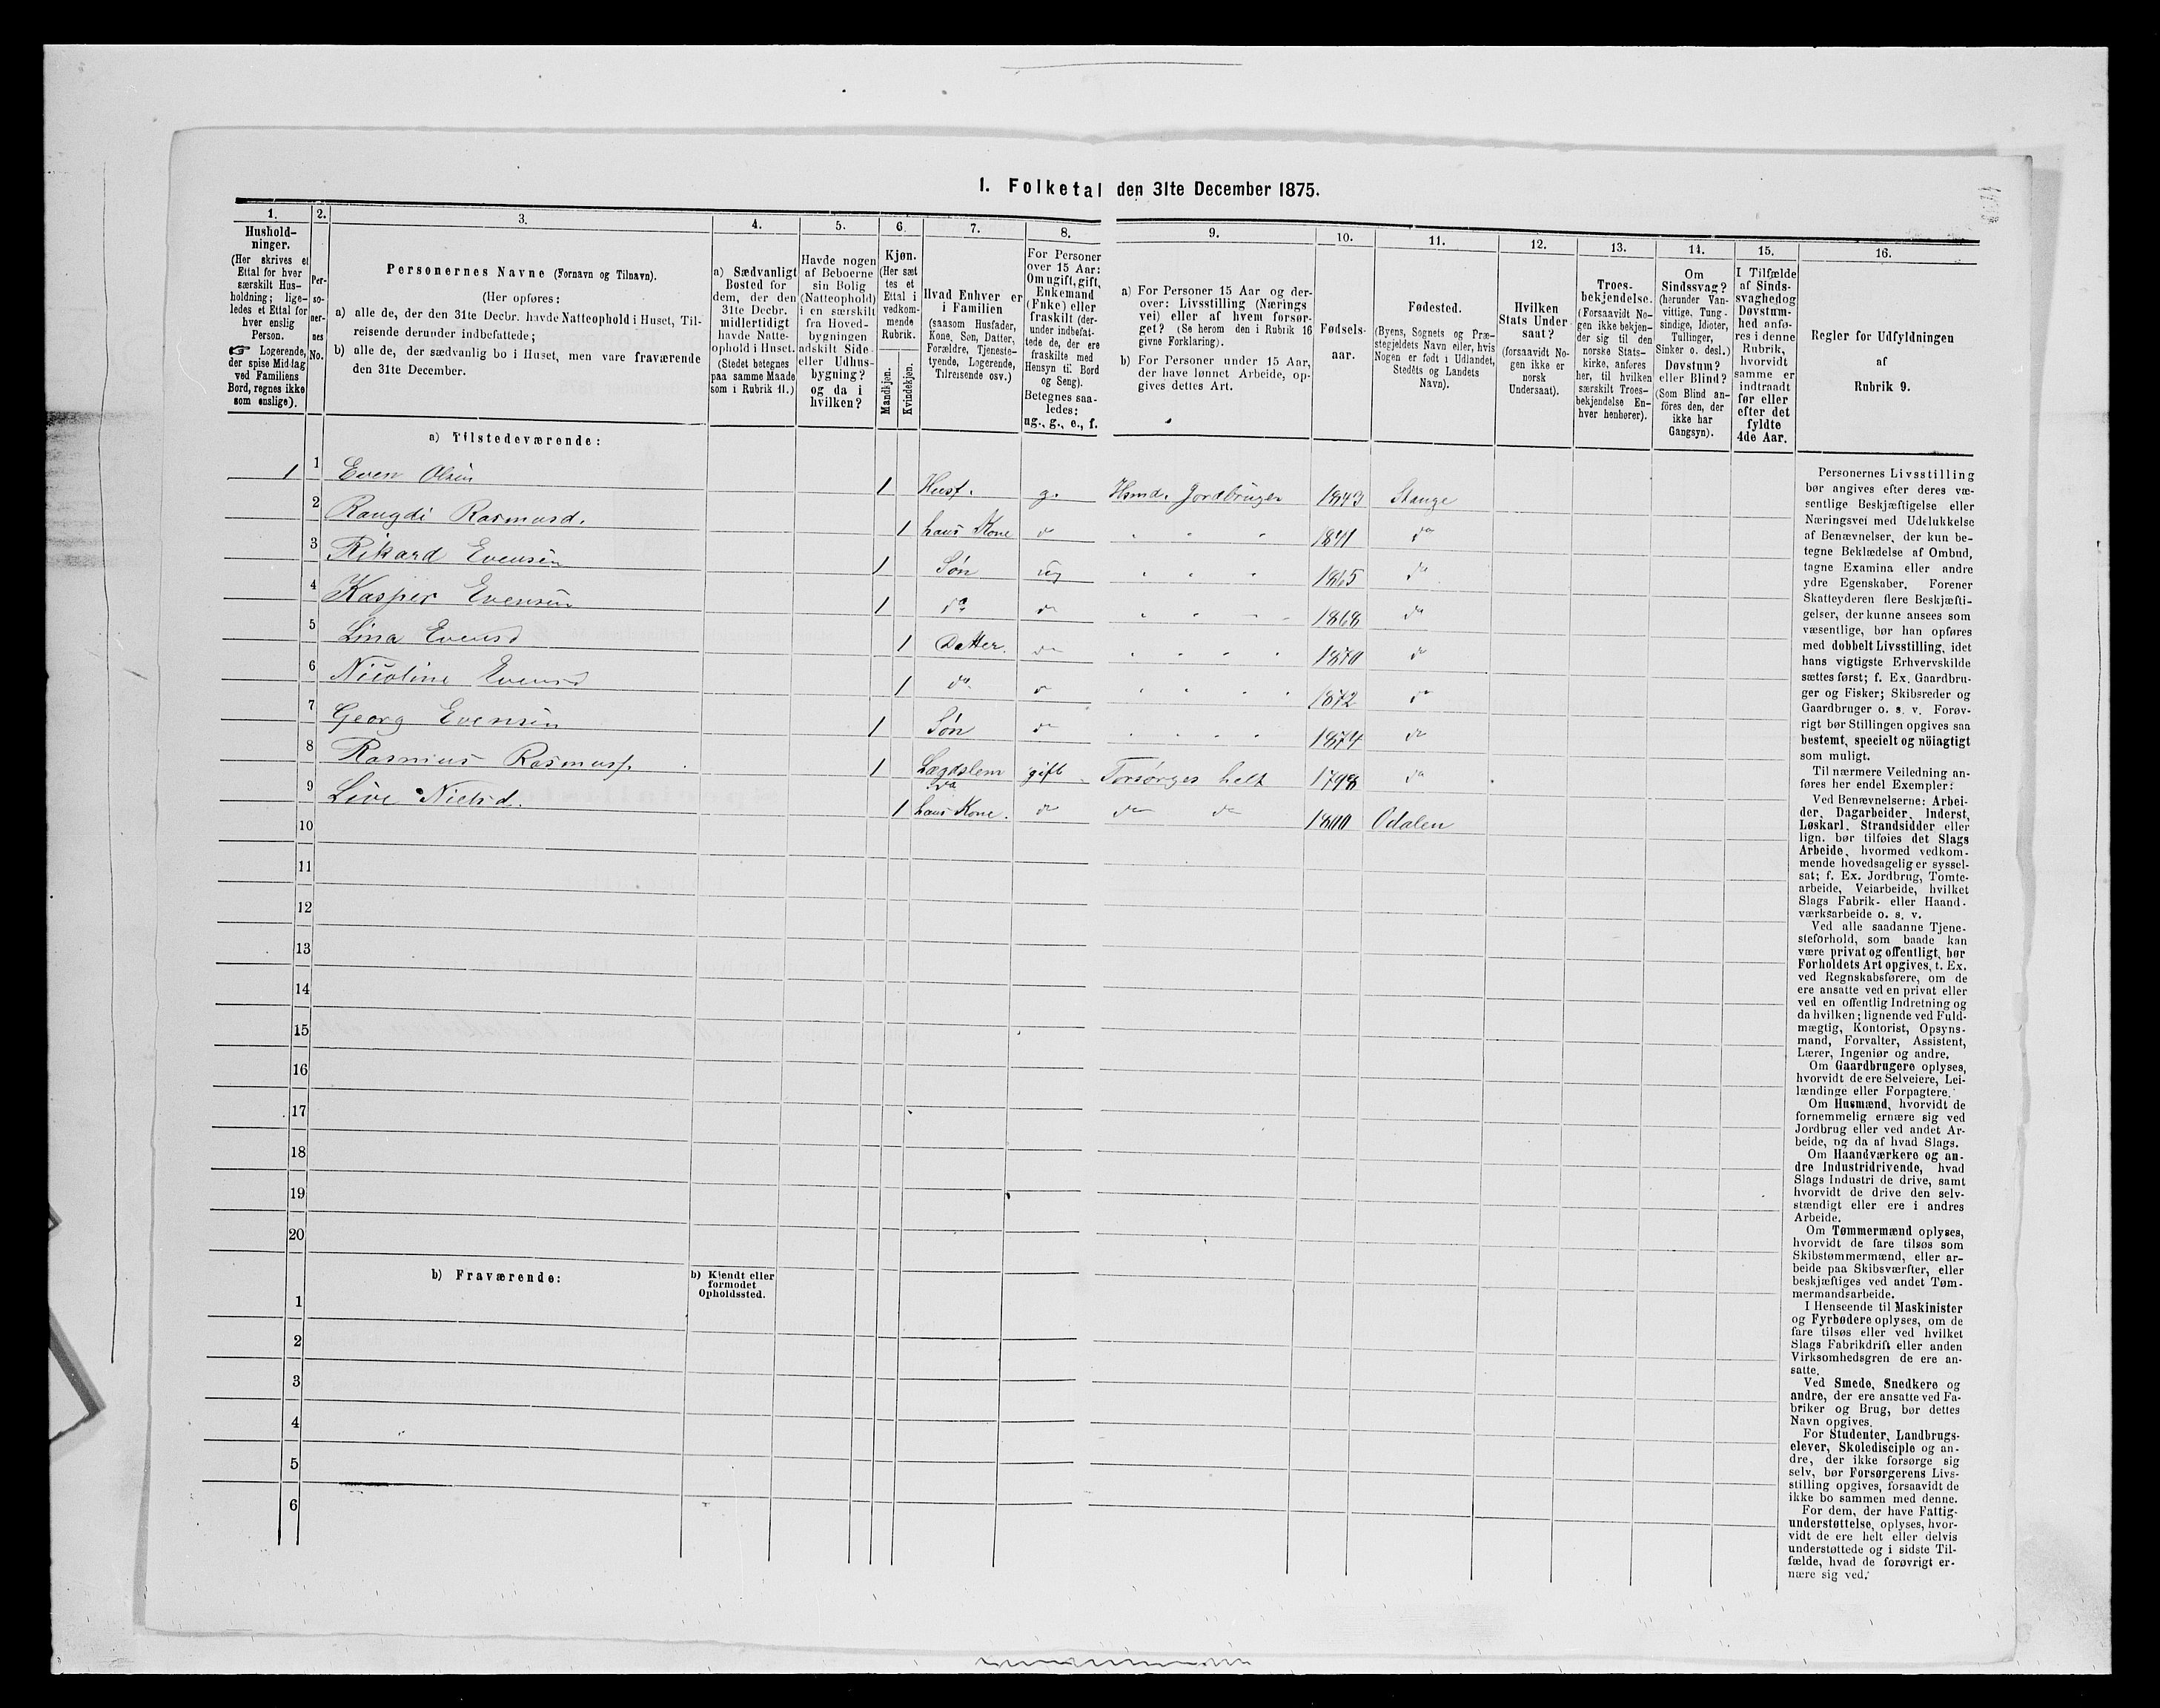 1. Folketal den 31te December 1875.
1. 2. 3. 4. 5. 6. 7. 8. 9. 10. 11. 12. 13. 14. 15. 16.
Hushold-
ninger.
(Her skrives et
Ettal for hver
særskilt Hus-
holdning; lige-
ledes et Ettal for
hver enslig
Person.
☞ Logerende,
der spise Middag
ved Familiens
Bord, regnes ikke
som enslige).
Per-
so-
ner-
nes
No.
Personernes Navne (Fornavn og Tilnavn).
(Her opføres:
a) alle de, der den 31te Decbr. havde Natteophold i Huset, Til-
reisende derunder indbefattede;
b) alle de, der sædvanlig bo i Huset, men vare fraværende
den 31te December.
a) Sædvanligt
Bosted for
dem, der den
31te Decbr.
midlertidigt
havde Natte-
ophold i Huset.
(Stedet betegnes
paa samme Maade
som i Rubrik 11.)
Havde nogen
af Beboerne
sin Bolig
(Natteophold)
i en særskilt
fra Hoved-
bygningen
adskilt Side-
eller Udhus-
bygning?
og da i
hvilken?
Kjøn.
(Her sæt-
tes et
Ettal i
vedkom-
mende
Rubrik.
Mandkjøn.
Kvindekjøn.
Hvad Enhver er
i Familien
(saasom Husfader,
Kone, Søn, Datter,
Forældre, Tjeneste-
tyende, Logerende,
Tilreisende osv.)
For Personer
over 15 Aar:
Om ugift, gift,
Enkemand
(Enke) eller
fraskilt (der-
under indbefat-
tede de, der ere
fraskilte med
Hensyn til Bord
og Seng).
Betegnes saa-
ledes:
ug., g., e., f.
a) For Personer 15 Aar og der-
over: Livsstilling (Nærings-
vei) eller af hvem forsør-
get? (Se herom den i Rubrik 16
givne Forklaring).
b) For Personer under 15 Aar,
der have lønnet Arbeide, op-
gives dettes Art.
Fødsels-
aar.
Fødested.
(Byens, Sognets og Præ-
stegjeldets Navn eller, hvis
Nogen er født i Udlandet,
Stedets og Landets
Navn).
Hvilken
Stats Under-
saat?
(forsaavidt No-
gen ikke er
norsk
Undersaat).
Troes-
bekjendelse.
(Forsaavidt No-
gen ikke bekjen-
der sig til den
norske Stats-
kirke, anføres
her, til hvilken
særskilt Troes-
bekjendelse En-
hver henhører).
Om
Sindssvag?
(herunder Van-
vittige, Tung-
sindige, Idioter,
Tullinger,
Sinker o. desl.)
Døvstum?
eller Blind?
(Som Blind an-
føres den, der
ikke har
Gangsyn).
I Tilfælde
af Sinds-
svaghed og
Døvstum-
hed anfø-
res i denne
Rubrik,
hvorvidt
samme er
indtraadt
før eller
efter det
fyldte
4de Aar.
Regler for Udfyldningen
af
Rubrik 9.
a) Tilstedeværende:
1 1 Even Olsen 1 Husf. g. Hsmd. Jordbruger 1843 Stange
2 Rangdi Rasmusd. 1 hans Kone do " " " 1841 do
3 Rikard Evensen 1 Søn ug " " " 1865 do
4 Kasper Evensen 1 do do " " " " 1868 do
5 Lina Evensd 1 Datter. do " " " " 1870 do
6 Nicoline Evensd 1 do do " " " " 1872 do
7 Georg Evensen 1 Søn do " " " " 1874 do
8 Rasmus Rasmusf. 1 Lægdslem gift Forsørges helt 1798 do
9 Live Nielsd. 1 do hans Kone. do do do 1800 Odalen
10
11
12
13
14
15
16
17
18
19
20
b) Fraværende:
b) Kjendt eller
formodet
Opholdssted.
1
2
3
4
5
6
Personernes Livsstilling
bør angives efter deres væ-
sentlige Beskjæftigelse eller
Næringsvei med Udelukkelse
af Benævnelser, der kun be-
tegne Beklædelse af Ombud,
tagne Examina eller andre
ydre Egenskaber. Forener
Skatteyderen flere Beskjæfti-
gelser, der kunne ansees som
væsentlige, bør han opføres
med dobbelt Livsstilling, idet
hans vigtigste Erhvervskilde
sættes først; f. Ex. Gaardbru-
ger og Fisker; Skibsreder og
Gaardbruger o. s. v. Forøv-
rigt bør Stillingen opgives saa
bestemt, specielt og nöiagtigt
som muligt.
Til nærmere Veiledning an-
føres her endel Exempler:
Ved Benævnelserne: Arbei-
der, Dagarbeider, Inderst,
Løskarl, Strandsidder eller
lign. bør tilføies det Slags
Arbeide, hvormed vedkom-
mende hovedsagelig er syssel-
sat; f. Ex. Jordbrug, Tomte-
arbeide, Veiarbeide, hvilket
Slags Fabrik- eller Haand-
værksarbeide o. s. v.
Ved alle saadanne Tjene-
steforhold, som baade kan
være privat og offentligt, bør
Forholdets Art opgives, t. Ex.
ved Regnskabsførere, om de
ere ansatte ved en privat eller
ved en offentlig Indretning og
da hvilken; lignende ved Fuld-
mægtig, Kontorist, Opsyns-
mand, Forvalter, Assistent,
Lærer, Ingeniør og andre.
Om Gaardbrugere oplyses,
hvorvidt de ere Selveiere, Lei-
lændinge eller Forpagtere.
Om Husmænd, hvorvidt de
fornemmelig ernære sig ved
Jordbrug eller ved andet Ar-
beide, og da af hvad Slags.
Om Haandværkere og an-
dre Industridrivende, hvad
Slags Industri de drive, samt
hvorvidt de drive den selv-
stændigt eller ere i andres
Arbeide.
Om Tømmermænd oplyses,
hvorvidt de fare tilsøs som
Skibstømmermænd, eller ar-
beide paa Skibsværfter, eller
beskjæftiges ved andet Tøm-
mermandsarbeide.
I Henseende til Maskinister
og Fyrbødere oplyses, om de
fare tilsøs eller ved hvilket
Slags Fabrikdrift eller anden
Virksomhedsgren de ere an-
satte.
Ved Smede, Snedkere og
andre, der ere ansatte ved Fa-
briker og Brug, bør dettes
Navn opgives.
For Studenter, Landbrugs-
elever, Skoledisciple og an-
dre, der ikke forsørge sig
selv, bør Forsørgerens Livs-
stilling opgives, forsaavidt de
ikke bo sammen med denne.
For dem, der have Fattig-
understøttelse, oplyses, hvor-
vidt de ere helt eller delvis
understøttede og i sidste Til-
fælde, hvad de forøvrigt er-
nære sig ved.